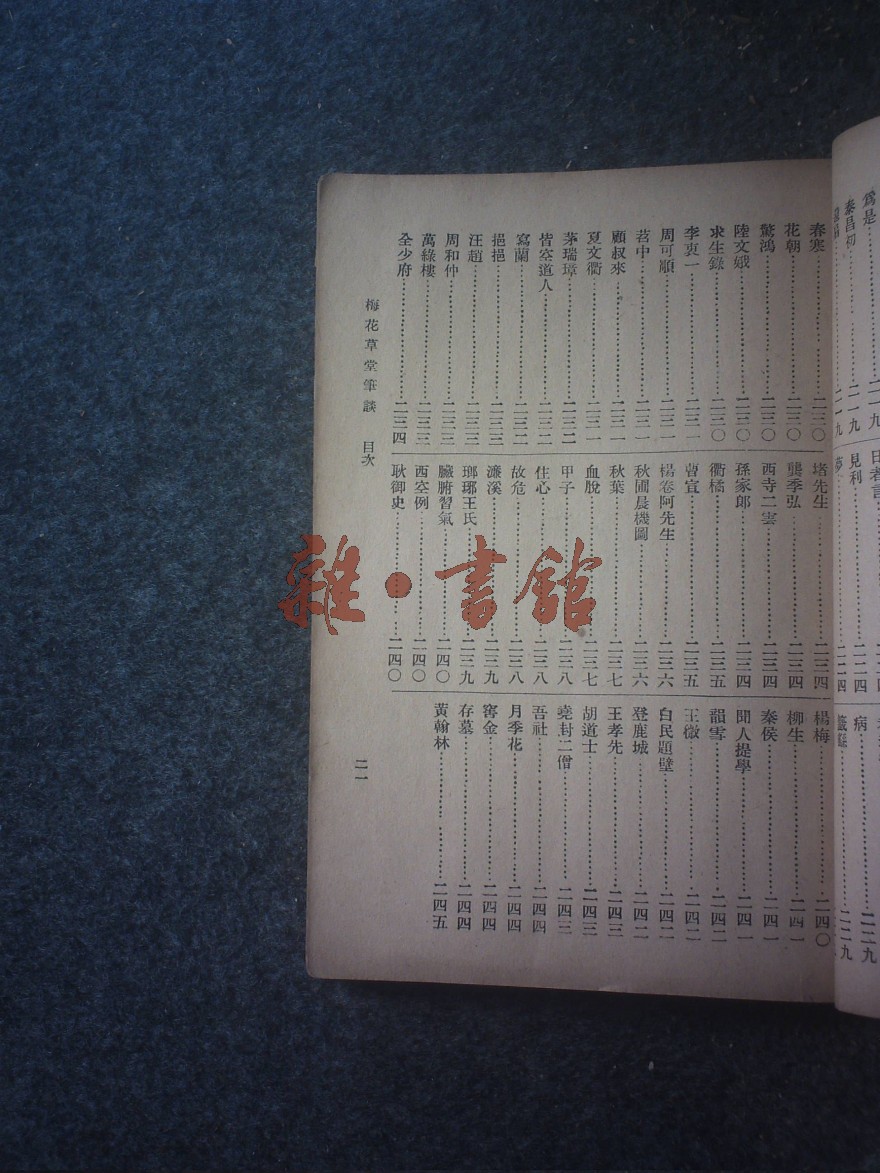 爲是……二一九
泰昌初……二一九
見利……二二四
病……二二九
春寒……二三〇
花朝……二三〇
驚鴻……二三〇
陸文娥……二三〇
求生錄……二三〇
李衷一……二三一
周可順……二三一
茗中……二三一
顧叔來……二三一
夏文衢……二三一
茅瑞璋……二三二
皆空道人……二三二
寫蘭……二三二
挹挹……二三三
汪趙……二三三
周和仲……二三三
萬綠樓……二三三
全少府……二三四
堵先生……二三四
龔季弘……二三四
西寺二雲……二三四
孫家郎……二三四
衢橘……二三五
曹宣……二三五
楊卷阿先生……二三六
秋圃晨機圖……二三六
秋葉……二三七
血脫……二三七
甲子……二三八
住心……二三八
故危……二三八
濂溪……二三九
瑯琊王氏……二三九
臟腑習氣……二四〇
西空例……二四〇
耿御史……二四〇
楊梅……二四〇
柳生……二四一
秦侯……二四一
聞人提學……二四一
韻雪……二四二
王微……二四二
白民題壁……二四二
登鹿城……二四二
王孝先……二四三
胡道士……二四三
堯封二僧……二四三
吾社……二四四
月季花……二四四
窖金……二四四
存墓……二四四
黃翰林……二四五
梅花草堂筆談 目次
二一
雜·書館